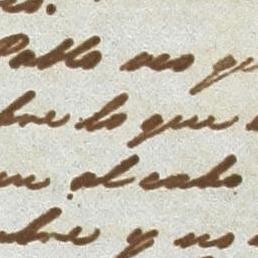 Pablo no qu
bre lo que
al cabo
bre y no